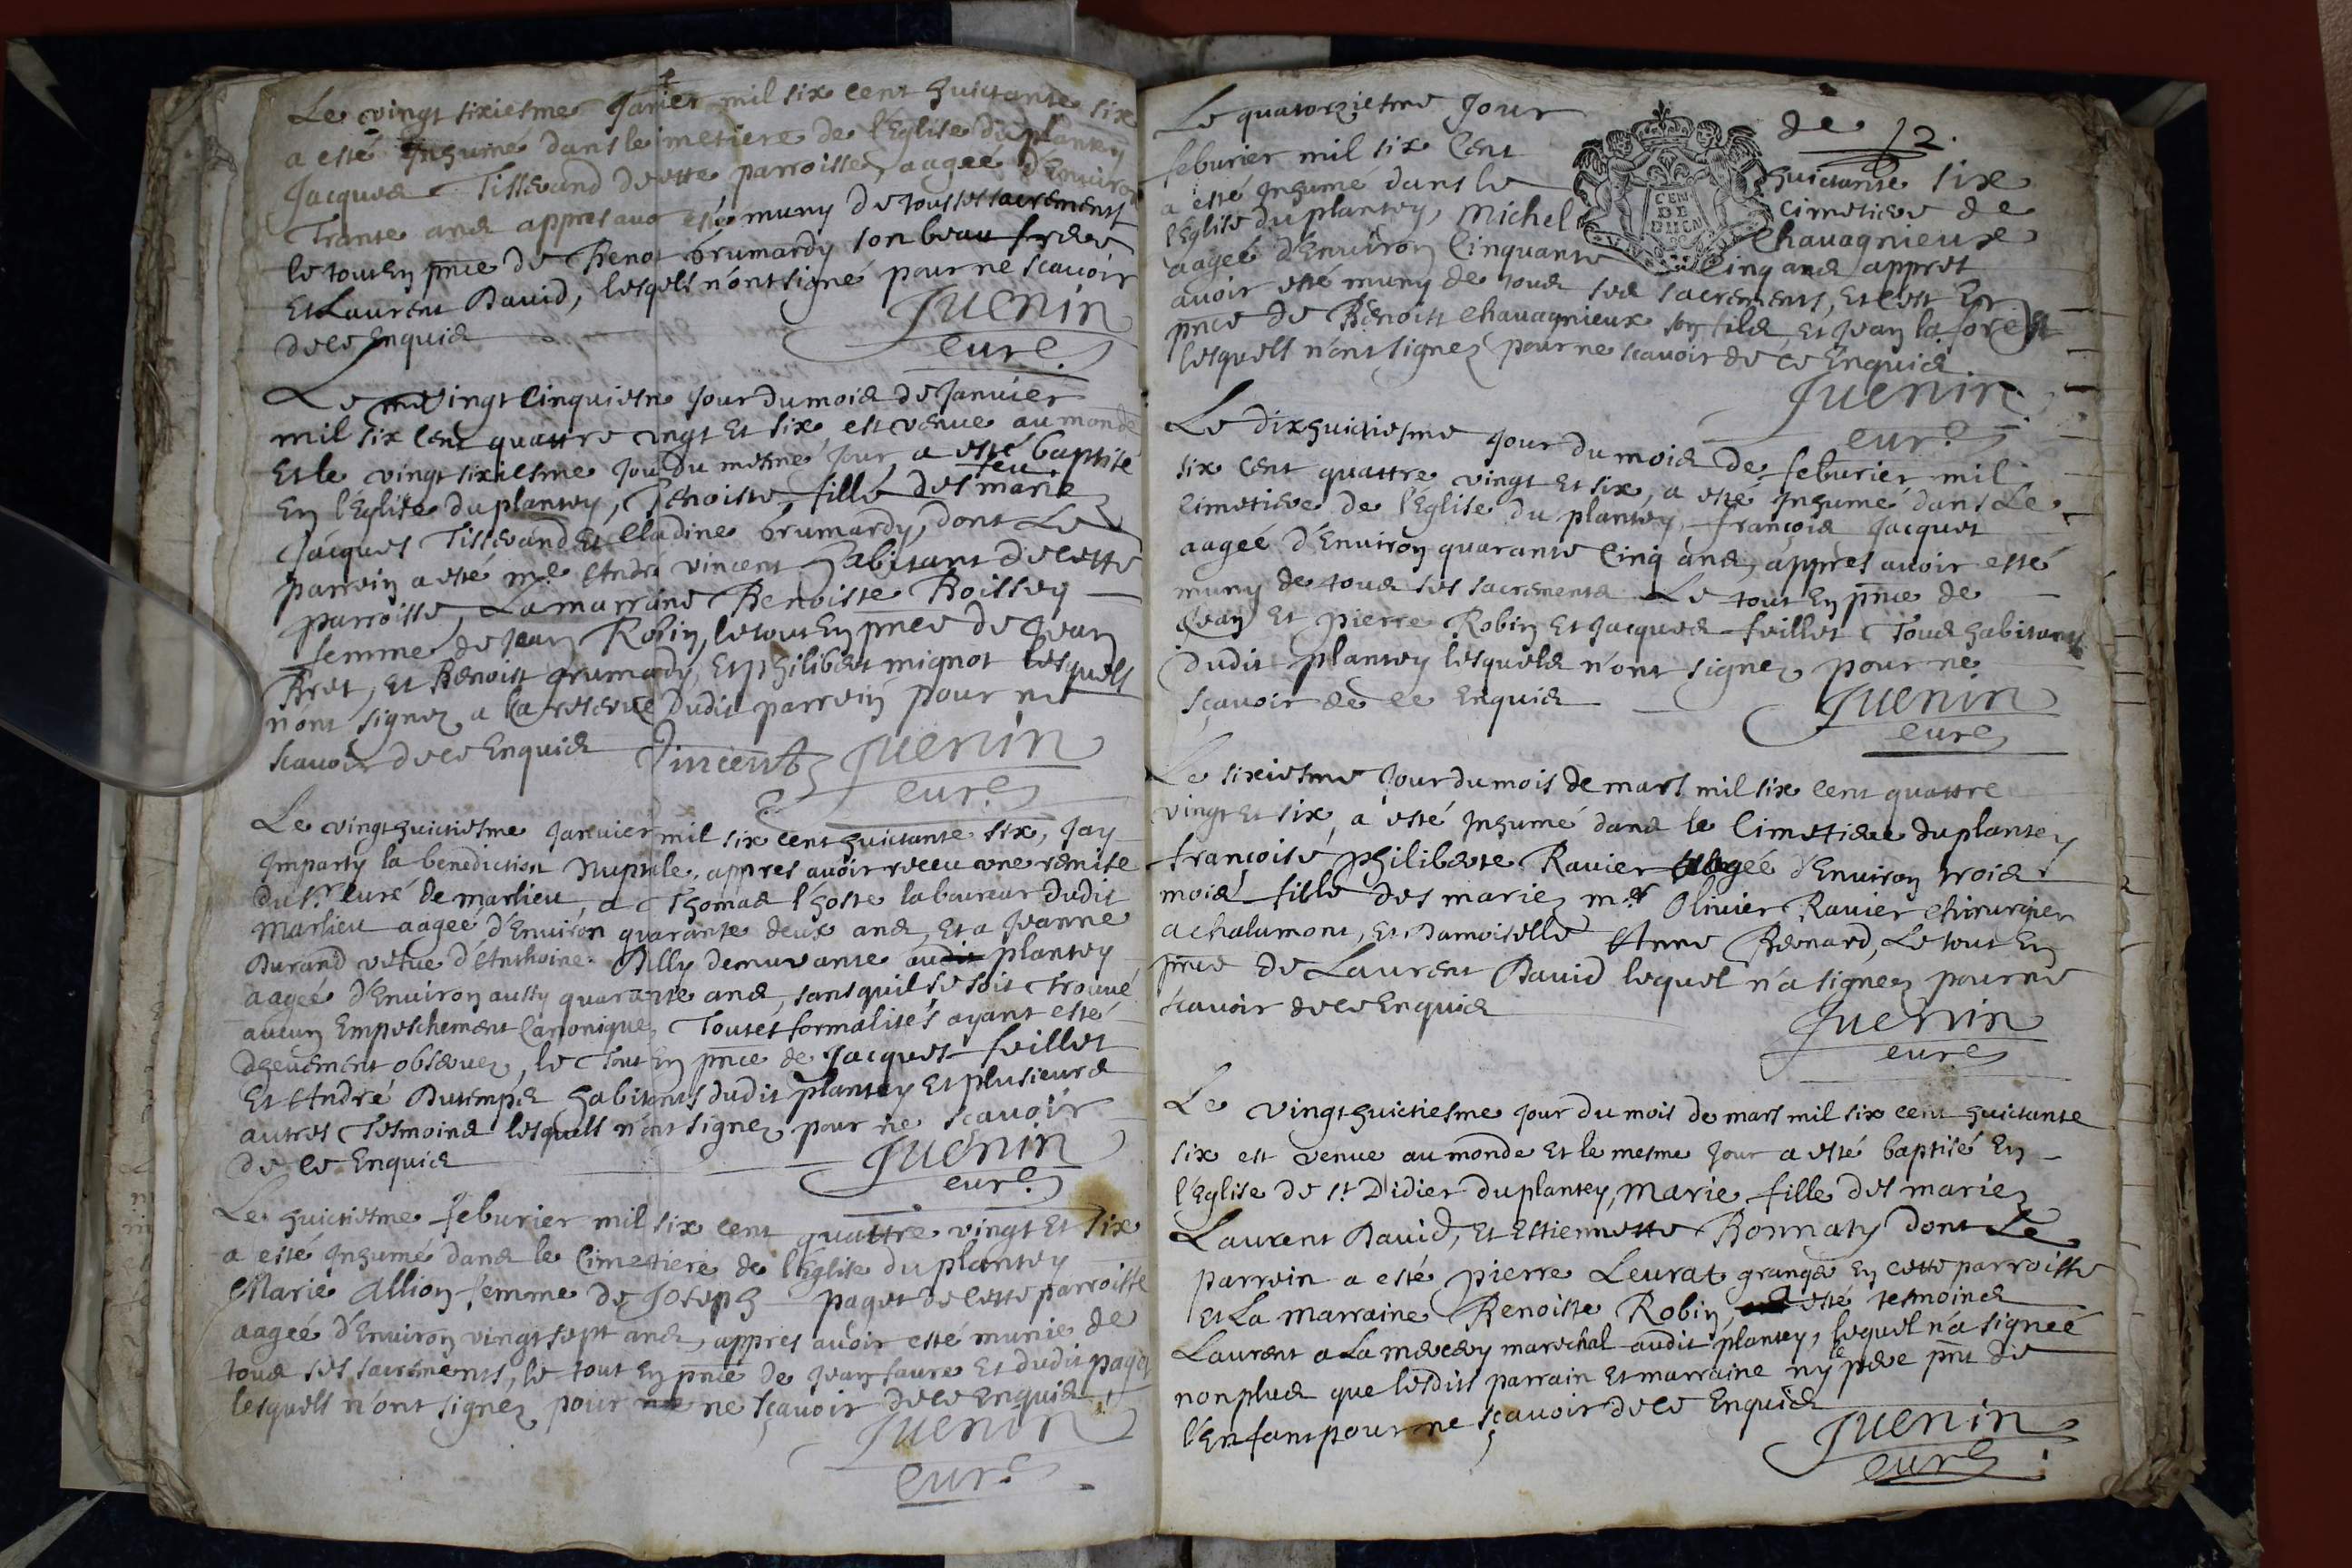 Le vingt sixiesme Janier mil six cent huictante six
a esté Inhumé dans le imetiere de l'Eglise du plantey
Jacques Tisserand de cette parroisse, aageé d'Environ
Trante ans appres auo esté muny de tous ses sacrements
le tout En pnce de Benoi brumardy son beau frere
Et Laurent Dauid, lesquels n'ont signé pour ne scauoir
de ce Enquis
Juenin
curé
Le vingt cinquiesme Jour du mois de Januier
mil six cent quattre vingt Et six est venue au monde
Et le vingt sixiesme Jou du mesme Jour a esté baptisé
En l'Eglise du plantey, Benoiste fille des feu marie
Jacques Tisserand Et Cladine brumardy, dont Le
parrein a esté me André vincent habitant de cette
parroisse, La marrane Benoiste Boissey
femme de Jean Robin, le tout En pnce de Jean
Bret, Et Benoist brumardy, Et philibert mignot lesquels
n'ont signez a la reserue dudit parrein pour ne
scauoir de ce Enquis
Vincent Juenin
curé
Le vingt huictiesme Januier mil six cent huictante six, Jay
Imparty la benediction Nuptile, appres auoir receu une remise
du sr curé de marlieu, a Thomas l'hoste laboureur dudit
Marlieu aageé d'Enuiron quarante deux ans, Et a Jeanne
Durand vefue d'Anthoine Billy demurante audit plantey
aageé d'Enuiron aussy quarante ans, sans quil se soit trouué
aucun Empeschement Canonique, Toutes formalités ayant esté
dheuement obseruez, le Tout En pnce de Jacques feillet
Et André Dutemps habitants dudit plantey Et plusieurs
autres Tesmoins lesquels n'ont signez pour ne scauoir
de ce Enquis
Juenin
curé
Le huictiesme feburier mil six cent quattre vingt Et six
a esté Inhumé dans le Cimetiere de l'Eglise du plantey
Marie Allion femme de Joseph paget de cette parroisse
aageé d'Enuiron vingt sept ans, appres auoir esté munie de
tous ses sacrements, le tout En pnce de Jean faure Et dudit paget
lesquels n'ont signez pour ne ne scauoir de ce Enquis
Juenin
curé
Le quatorziesme Jour de 12.
feburier mil six Cent huictante six
a esté Inhumé dans le cimetiere de
l'Eglise du plantey, Michel Chauagnieux
aageé d'Enuiron Cinquante Cinq ans appres
auoir esté muny de tous ses sacrements, Et c'est En
pnce de Benoist chauagnieux son fils, Et Jean la forest
lesquels n'ont signez pour ne scauoir de ce Enquis
GEN
DE
DIJON
Juenin
curé
Le dixhuictiesme Jour du mois de feburier mil
six cent quattre vingt Et six, a esté Inhumé dans Le
Cimetiere de l'Eglise du plantey, françois Jacquet
aageé d'Enuiron quarante Cinq ans, appres auoir esté
muny de tous ses sacrements Le tout En pnce de
Jean Et pierre Robin Et Jacques feillet Tous habitants
dudit plantey lesquels n'ont signez pour ne
scauoir de ce Enquis
Juenin
curé
Le sixiesme Jour du mois de mars mil six cent quattre
vingt Et six, a esté Inhumé dans le Cimetiere du plantey
françoise philiberte Rauier aageé d'Enuiron trois
mois fille des mariez me Oliuier Rauier chirurgien
a chalumont, Et Damoiselle Anne Benard, Le tout En
pnce de Laurent Dauid lequel n'a signez pour ne
scauoir de ce Enquis
Juenin
curé
Le vingt huictiesme Jour du mois de mars mil six cent huictante
six est venue au monde Et le mesme Jour a esté baptisé En
l'Eglise de st Didier du plantey, Marie fille des mariez
Laurent Dauid, Et Estiennette Bonnaty dont Le
parrein a esté pierre Leurat granger En cette parroisse
Et La Marraine Benoiste Robin, a esté tesmoins
Laurent a La mercery mareschal audit plantey, lequel n'a signeé
non plus que lesdits parrain Et marraine ny le pere pnt de
l'Enfant pour ne scauoir de ce Enquis
Juenin
curé